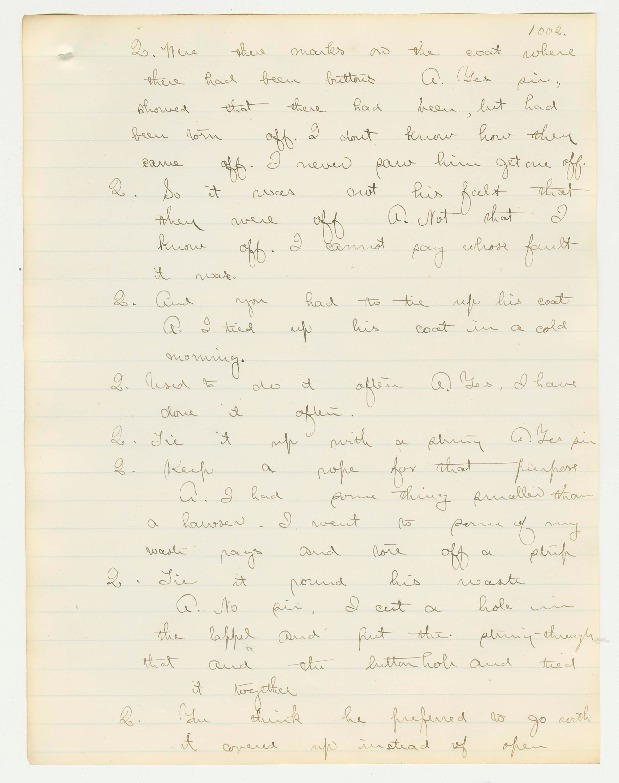 1002.
Q. Were there marks on the coat where
there had been buttons A. Yes sir,
showed that there had been, but had
been torn off. I dont know how they
came off. I never saw him get one off.
Q. So it was not his falt that
they were off A. Not that I
know off. I cannot say whose fault
it was.
Q. And you had to tie up his coat
A. I tied up his coat in a cold
morning.
Q. Used to do it often A. Yes, I have
done it often.
Q. Tie it up with a string A. Yes sir
Q. Keep a rope for that purpose
A. I had some thing smaller than
a hawser. I went to some of my
wash rags and tore off a strip
Q. Tie it round his waste
A. No sir, I cut a hole in
the lappel and put the string through
that and the button hole and tied
it together
Q. You think he preferred to go with
it covered up instead of open